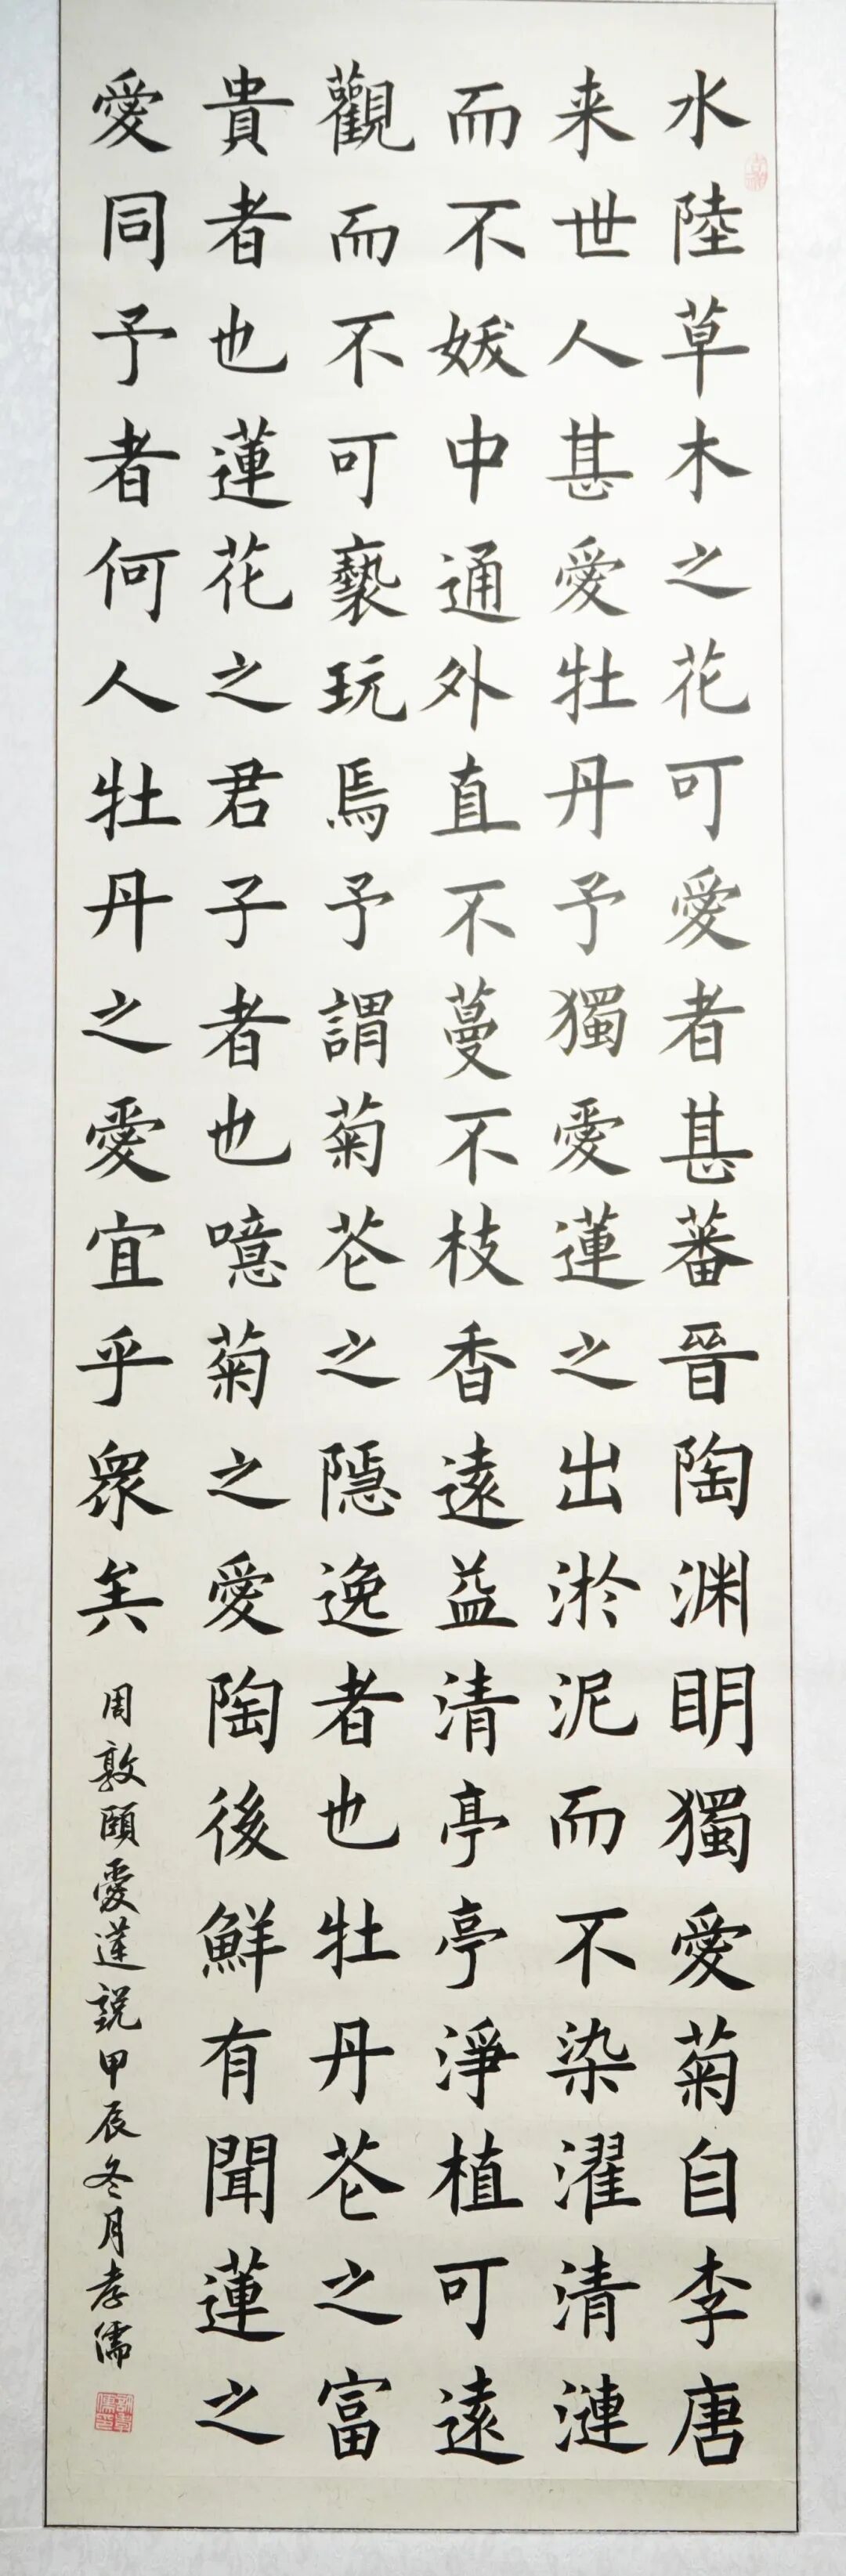 水陸草木之花可愛者甚蕃晉陶渊明獨愛菊自李唐
来世人甚愛牡丹予獨愛蓮之出淤泥而不染濯清漣
而不妖中通外直不蔓不枝香遠益清亭亭淨植可遠
觀而不可褻玩焉予謂菊苍之隱逸者也牡丹苍之富
貴者也蓮花之君子者也噫菊之愛陶後鮮有聞蓮之
愛同予者何人牡丹之愛宜乎眾矣
周敦頤愛蓮説甲辰冬月孝儒